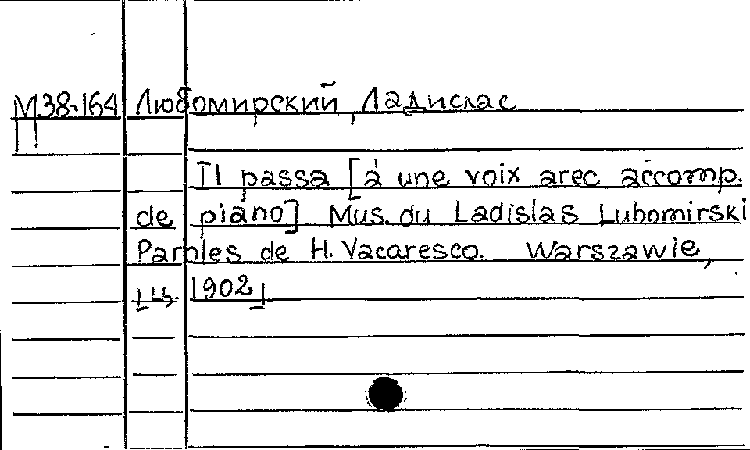 М38-164 Любомирский, Ладислас
Il passa [à une voix avec accomp.
de piano] Mus. du Ladislas Lubomirski
Paroles de H. Vacaresco. Warszawie,
1902